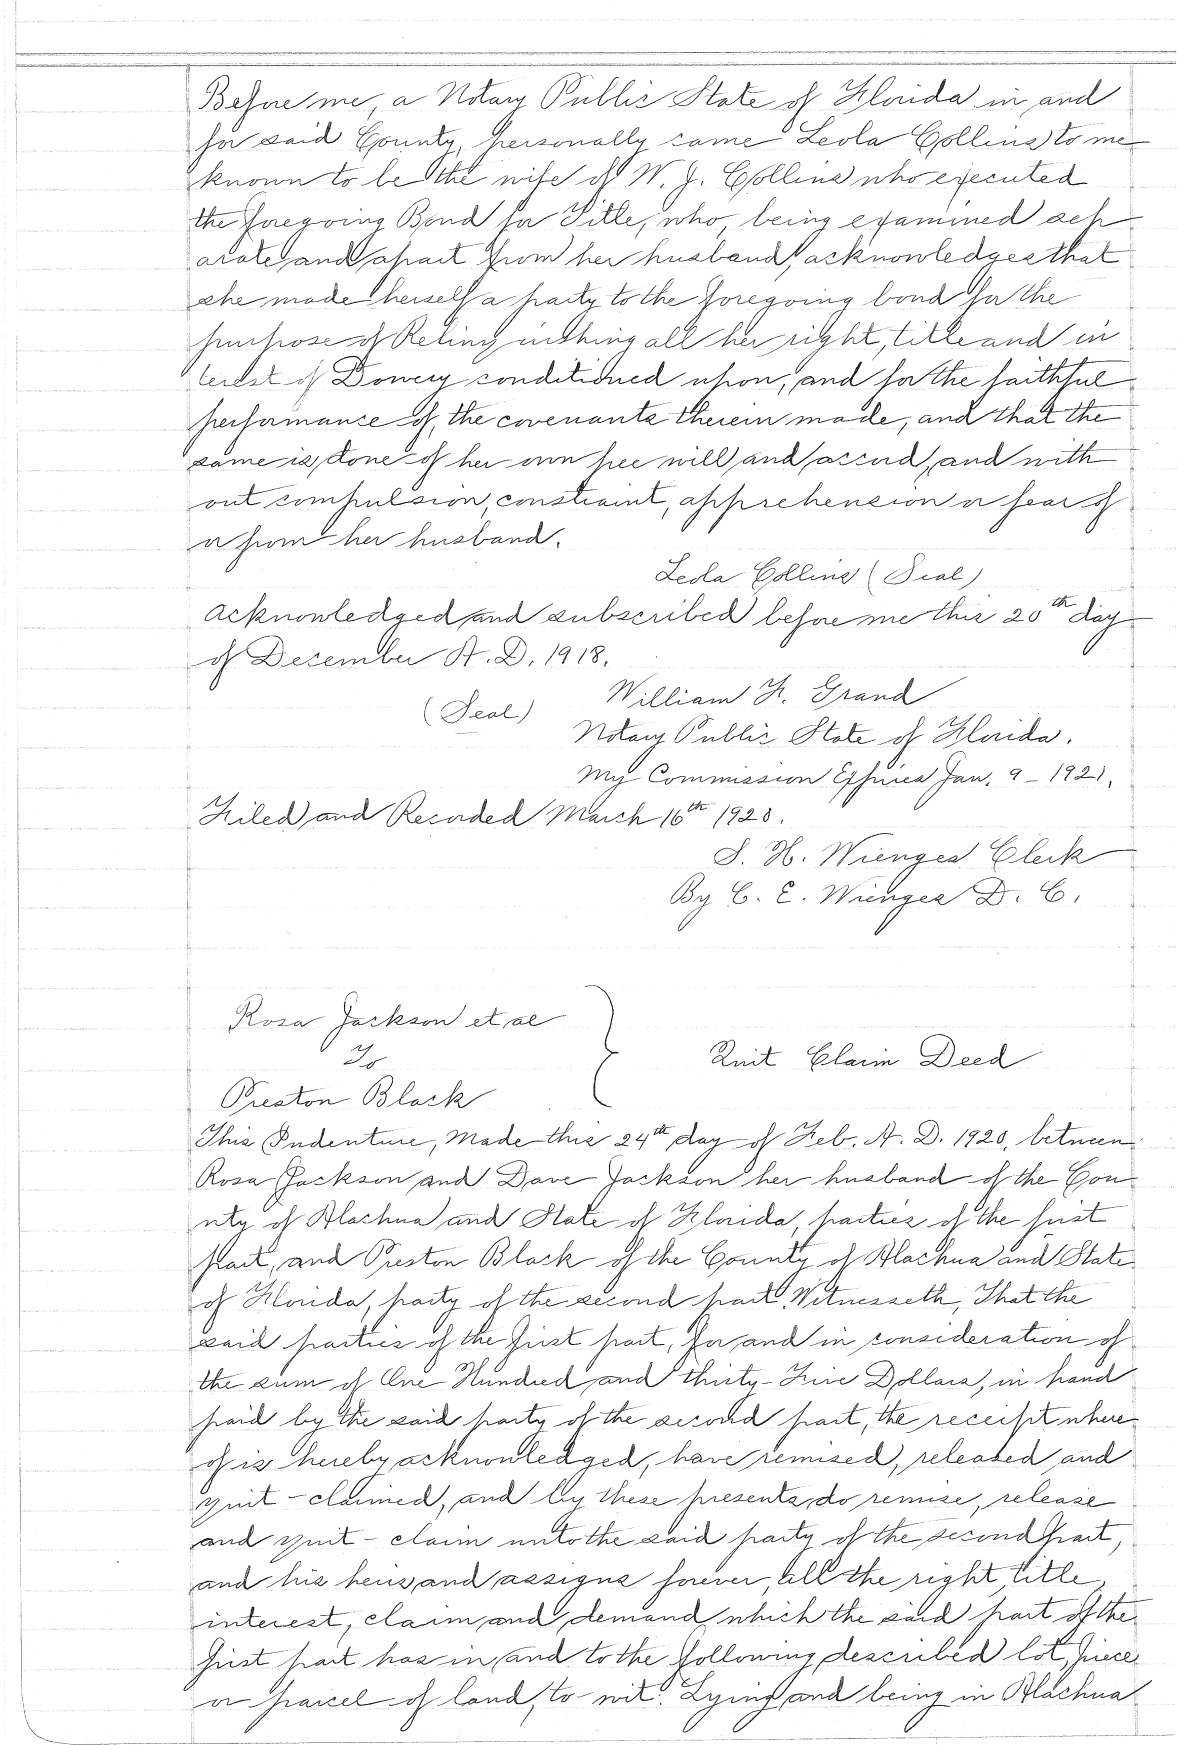 Before me, a Notary Public State of Florida in and
for said County, personally came Leola Collins to me
known to be the wife of W. J. Collins who executed
the foregoing Bond for Title, who, being examined sep
arate and apart from her husband, acknowledges that
she made herself a party to the foregoing bond for the
purpose of Relinquishing all her right, title and in
terest of Dowery conditioned upon, and for the faithful
performance of, the covenants therein made, and that the
same is done of her own free will and accord, and with
out compulsion, constraint, apprehension or fear of
or from her husband.
Leola Collins (Seal)
Acknowledged and subscribed before me this 20th day
of December A. D. 1918.
William F. Grand
(Seal)
Notary Public State of Florida.
My Commission Expires Jan. 9 - 1921.
Filed and Recorded March 16th 1920.
S. H. Wienges Clerk
By C. E. Wienges D. C.
Rosa Jackson et al
To
Preston Black
Quit Claim Deed
This Indenture, Made this 24th day of Feb. A. D. 1920, between
Rosa Jackson and Dave Jackson her husband of the Cou
nty of Alachua and State of Florida, parties of the first
part, and Preston Black of the County of Alachua and State
of Florida, party of the second part. Witnesseth, That the
said parties of the first part, for and in consideration of
the sum of One Hundred and thirty-Five Dollars, in hand
paid by the said party of the second part, the receipt where-
of is hereby acknowledged, have remised, released and
quit-claimed, and by these presents do remise, release
and quit-claim unto the said party of the second part,
and his heirs and assigns forever, all the right, title,
interest, claim and demand which the said part of the
first part has in and to the following described lot, piece
or parcel of land, to-wit: Lying and being in Alachua